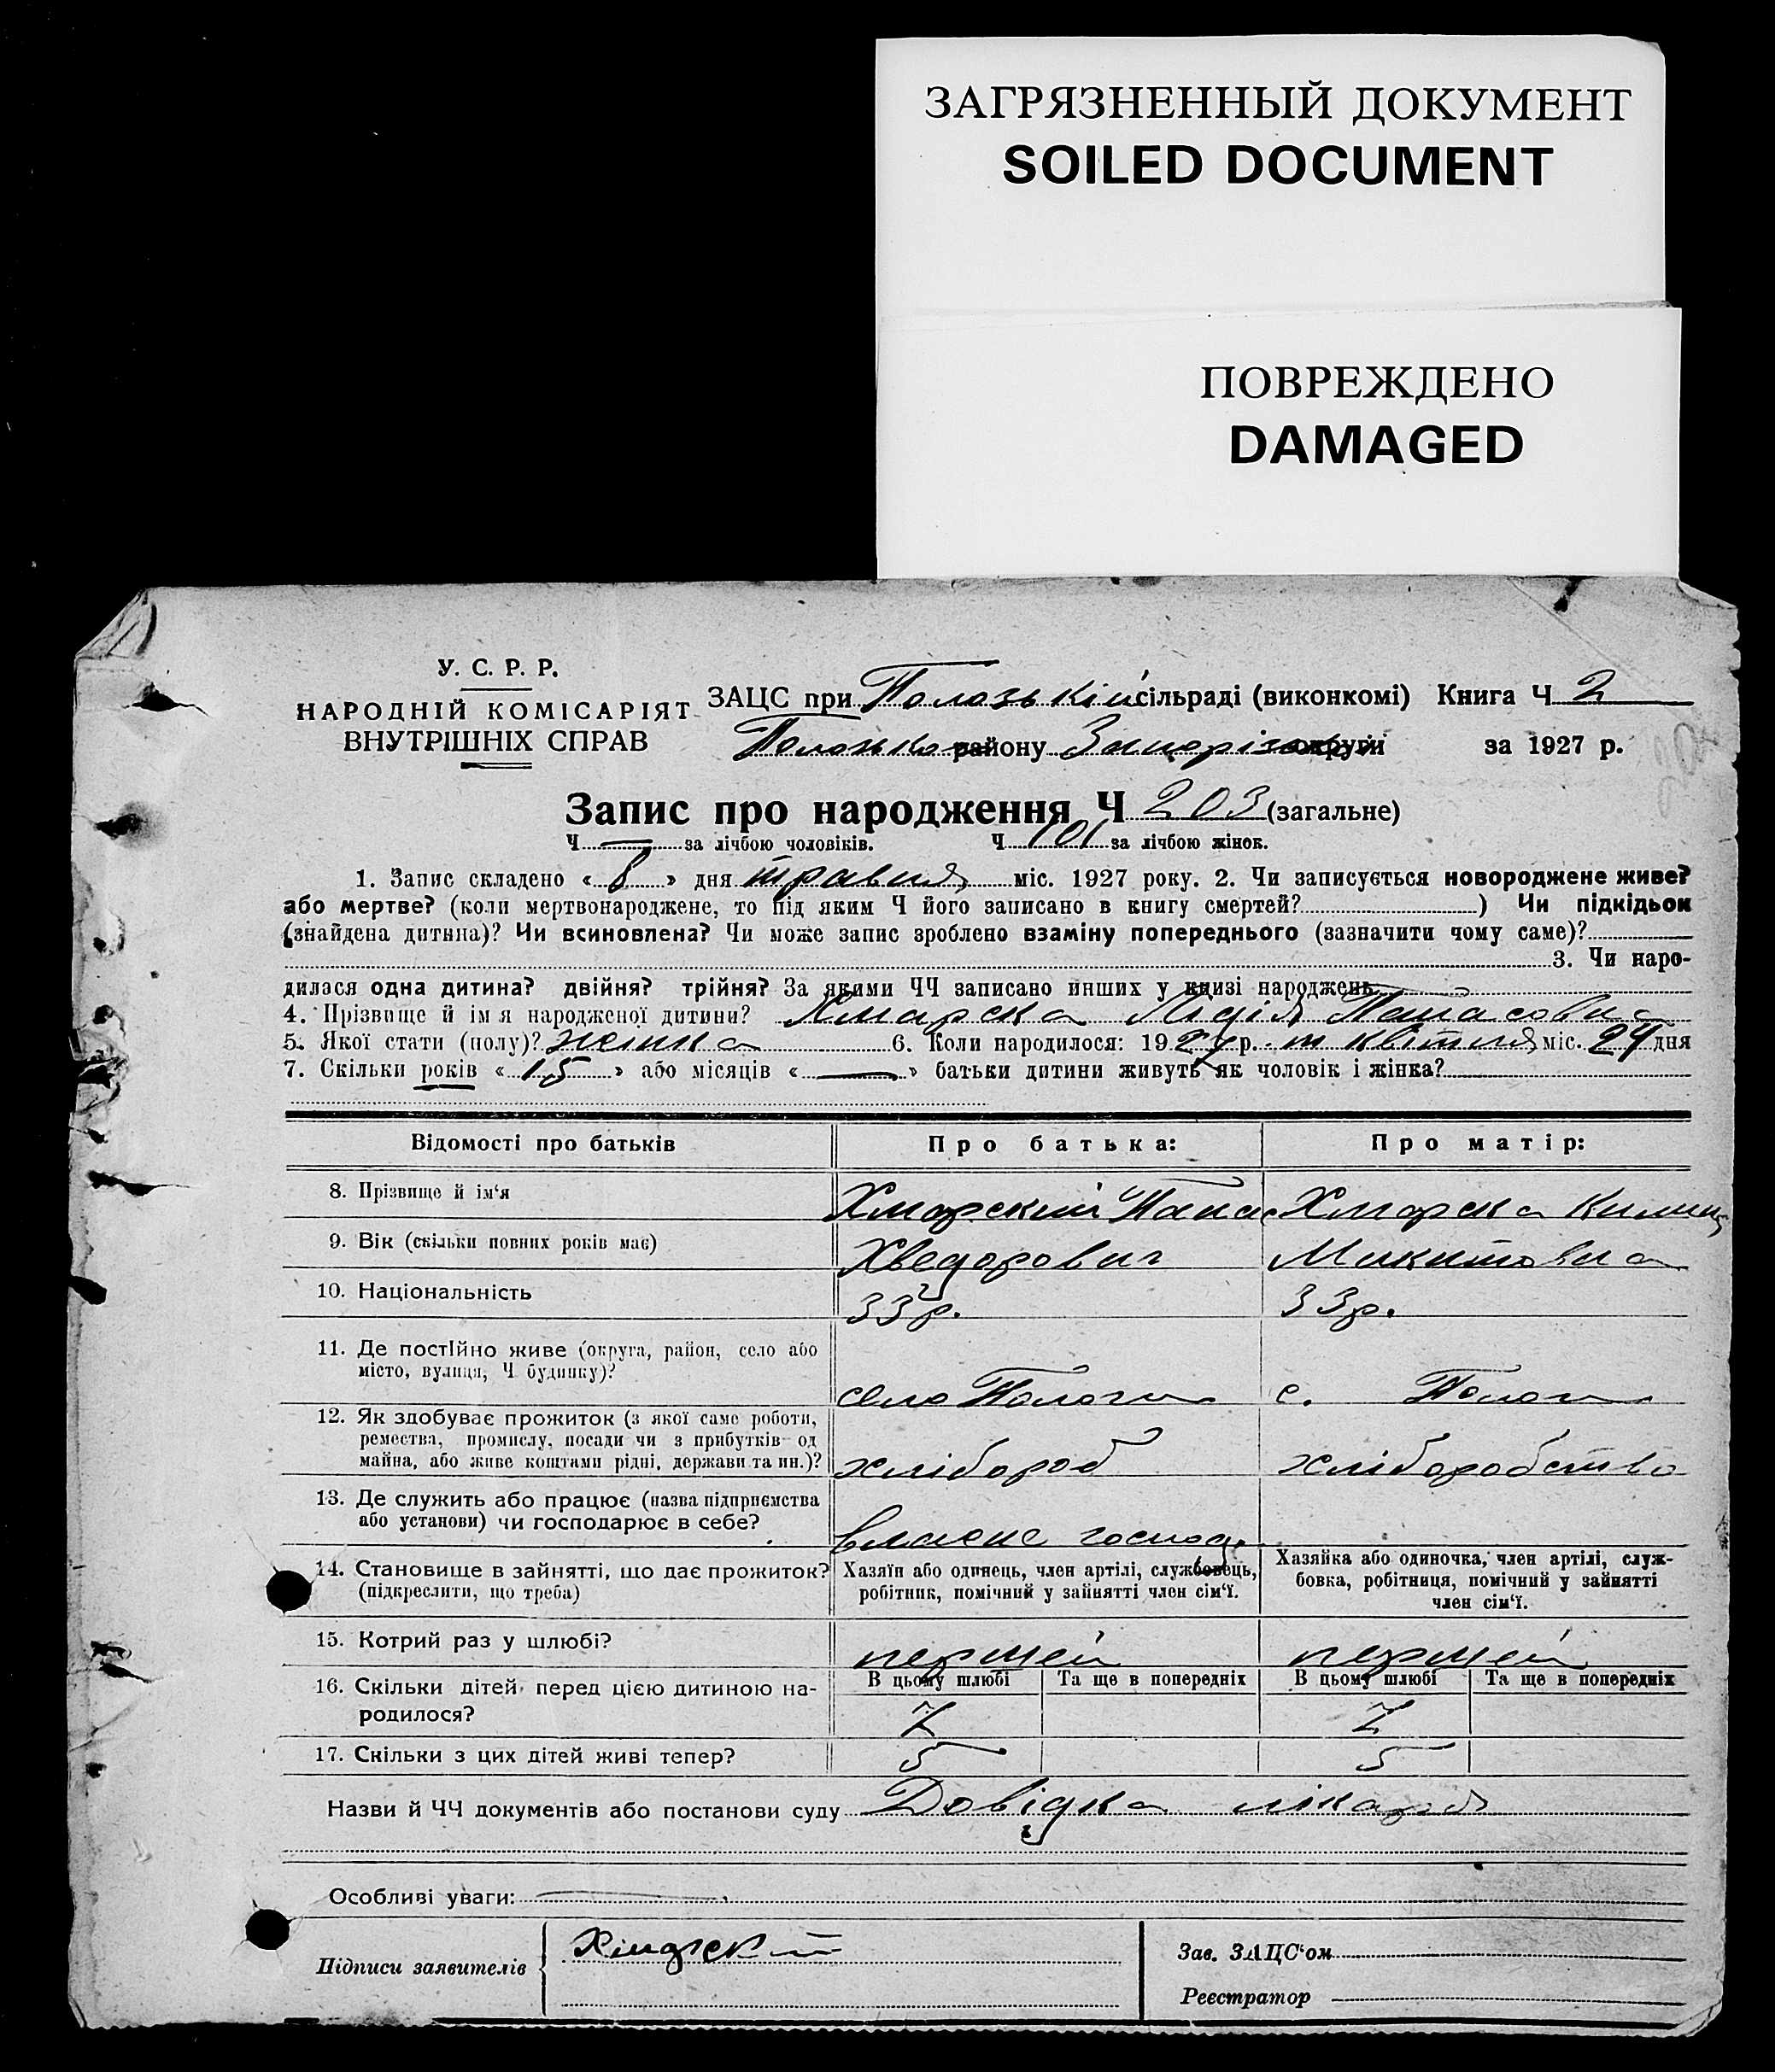 ЗАГРЯЗНЕННЫЙ ДОКУМЕНТ
SOILED DOCUMENT
ПОВРЕЖДЕНО
DAMAGED
У. С. Р. Р.
НАРОДНІЙ КОМІСАРІЯТ
ВНУТРІШНІХ СПРАВ
ЗАЦС при Пологзькій сільраді (виконкомі) Книга Ч 2
району округи за 1927 р.
Запис про народження Ч 203 (загальне)
Ч — за лічбою чоловіків. Ч 101 за лічбою жінок.
1. Запис складено « 8 » дня травня міс. 1927 року. 2. Чи записується новороджене живе?
або мертве? (коли мертвонароджене, то під яким Ч його записано в книгу смертей? ) Чи підкідьок
(знайдена дитина)? Чи всиновлена? Чи може запис зроблено взаміну попереднього (зазначити чому саме)?
3. Чи наро-
дилася одна дитина? двійня? трійня? За якими ЧЧ записано инших у книзі народжень
4. Прізвище й ім'я народженої дитини? Хмарска Лідія Панасовна
5. Якої стати (полу)? жінка 6. Коли народилося: 1927 р. м квітня міс. 24 дня
7. Скільки років « 15 » або місяців « — » батьки дитини живуть як чоловік і жінка?
Відомості про батьків Про батька: Про матір:
8. Прізвище й ім'я Хмарский Панас Хмарска
9. Вік (скільки повних років має) Хведорович Микитовна
10. Національність 33 р. 33 р.
11. Де постійно живе (округа, район, село або
місто, вулиця, Ч будинку)? село Пологи с. Пологи
12. Як здобуває прожиток (з якої саме роботи,
ремества, промислу, посади чи з прибутків од
майна, або живе коштами рідні, держави та ин.)? хлібороб хліборобство
13. Де служить або працює (назва підприємства
або установи) чи господарює в себе? власне господ.
14. Становище в зайнятті, що дає прожиток?
(підкреслити, що треба)
Хазяїн або одинець, член артілі, службовець,
робітник, помічний у зайнятті член сім'ї.
Хазяйка або одиночка, член артілі, служ-
бовка, робітниця, помічний у зайнятті
член сім'ї.
15. Котрий раз у шлюбі? першей першей
В цьому шлюбі Та ще в попередніх В цьому шлюбі Та ще в попередніх
16. Скільки дітей перед цією дитиною на-
родилося? 7 7
17. Скільки з цих дітей живі тепер? 5 5
Назви й ЧЧ документів або постанови суду Довідка лікаря
Особливі уваги: —
Підписи заявителів
Зав. ЗАЦС'ом
Реєстратор